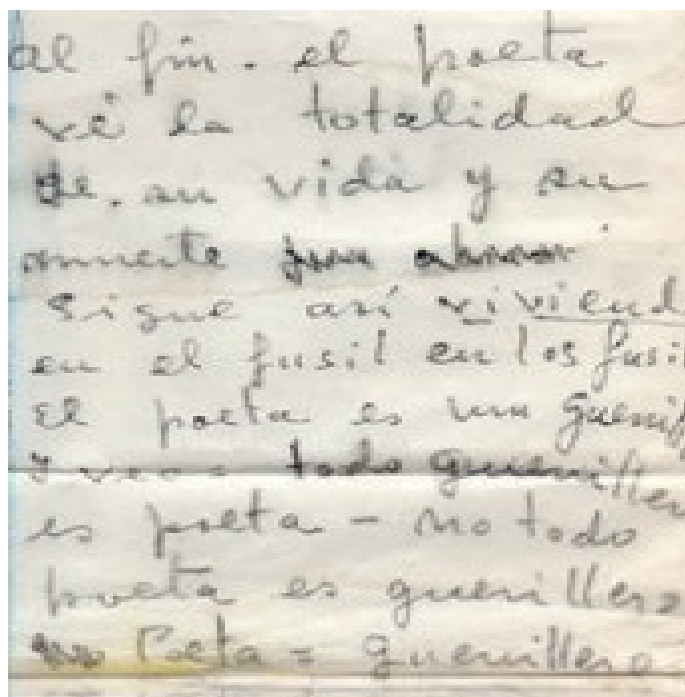 al fin. el poeta
vé la totalidad
de. su vida y su
muerte
sigue así viviend
en el fusil en los fusi
El poeta es un guerrill
y veo= todo guerrillero
es poeta - no todo
poeta es guerrillero
Poeta = guerrillero